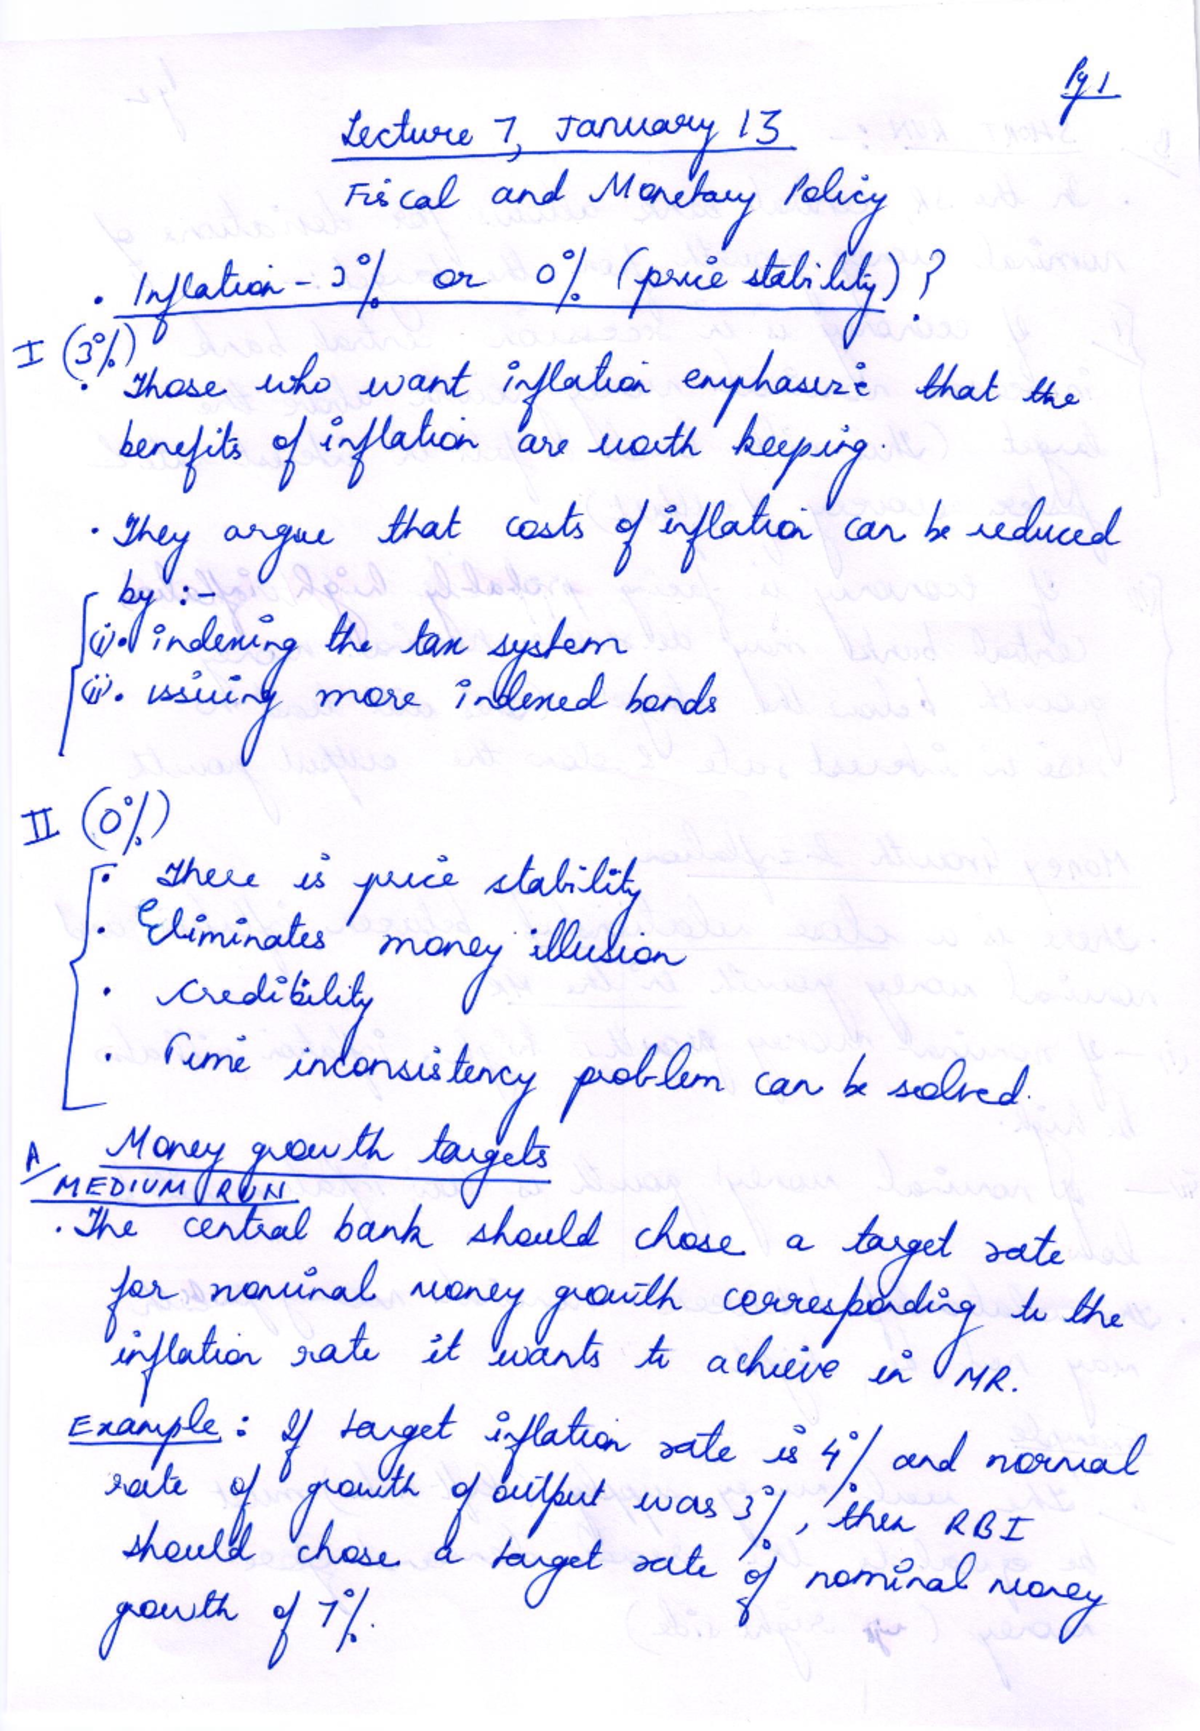 Pg 1
Lecture 7, January 13
Fiscal and Monetary Policy
• Inflation - 3% or 0% (price stability)?
I (3%)
• Those who want inflation emphasize that the
benefits of inflation are worth keeping.
• They argue that costs of inflation can be reduced
by :-
(i). indexing the tax system
(ii). issuing more indexed bonds
II (0%)
• There is price stability
• Eliminates money illusion
• credibility
• Time inconsistency problem can be solved.
A/ Money growth targets
MEDIUM RUN
• The central bank should chose a target rate
for nominal money growth corresponding to the
inflation rate it wants to achieve in MR.
Example : If target inflation rate is 4% and normal
rate of growth of output was 3%, then RBI
should chose a target rate of nominal money
growth of 7%.